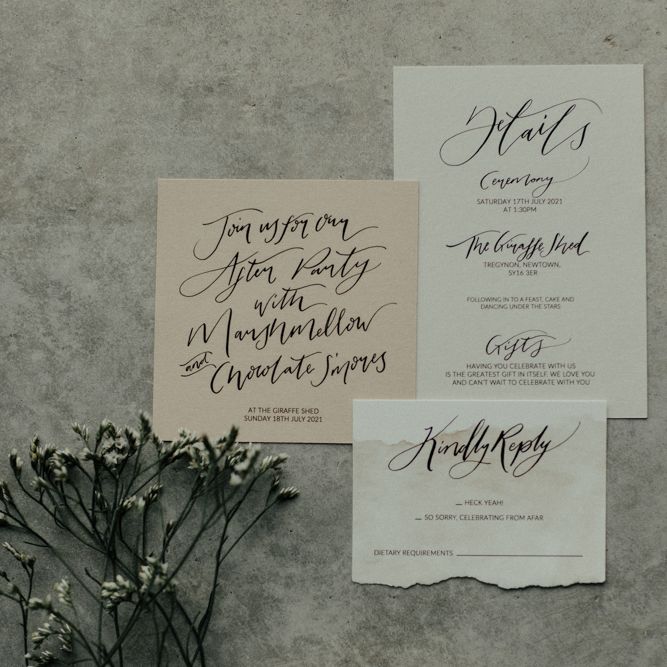 Join us for our
After Party
with
Marshmellow
and Chocolate S'mores
AT THE GIRAFFE SHED
SUNDAY 18TH JULY 2021
Details
Ceremony
SATURDAY 17TH JULY 2021
AT 1:30PM
The Giraffe Shed
TREGYNON, NEWTOWN,
SY16 3ER
FOLLOWING IN TO A FEAST, CAKE AND
DANCING UNDER THE STARS
Gifts
HAVING YOU CELEBRATE WITH US
IS THE GREATEST GIFT IN ITSELF. WE LOVE YOU
AND CAN'T WAIT TO CELEBRATE WITH YOU
Kindly Reply
__ HECK YEAH!
__ SO SORRY, CELEBRATING FROM AFAR
DIETARY REQUIREMENTS ____________________